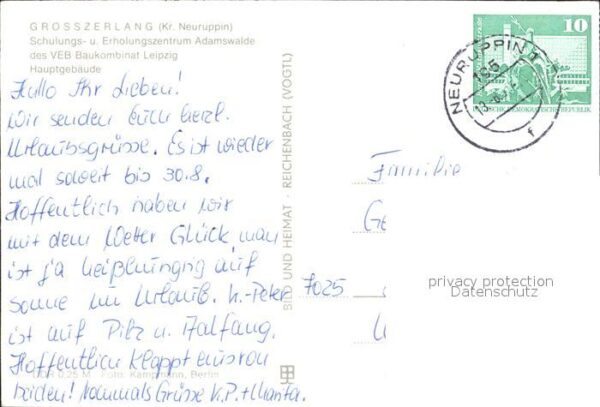 GROSSZERLANG (Kr. Neuruppin)
Schulungs- u. Erholungszentrum Adamswalde
des VEB Baukombinat Leipzig
Hauptgebäude
Hallo Ihr Lieben!
Wir senden Euch herzl.
Urlaubsgrüsse. Es ist wieder
mal soweit bis 30.8.
Hoffentlich haben wir
mit dem Wetter Glück, man
ist ja heißhungrig auf
Sonne im Urlaub. K.-Peter
ist auf Pilz u. Aalfang.
Hoffentlich klappt eins von
beiden! Nochmals Grüsse K.P. + Marita.
DDR 0,25 M Foto: Kampmann, Berlin
BILD UND HEIMAT · REICHENBACH (VOGTL)
NEURUPPIN 1
195
f
10
DEUTSCHE DEMOKRATISCHE REPUBLIK
Familie
Ge
7025
privacy protection
Datenschutz